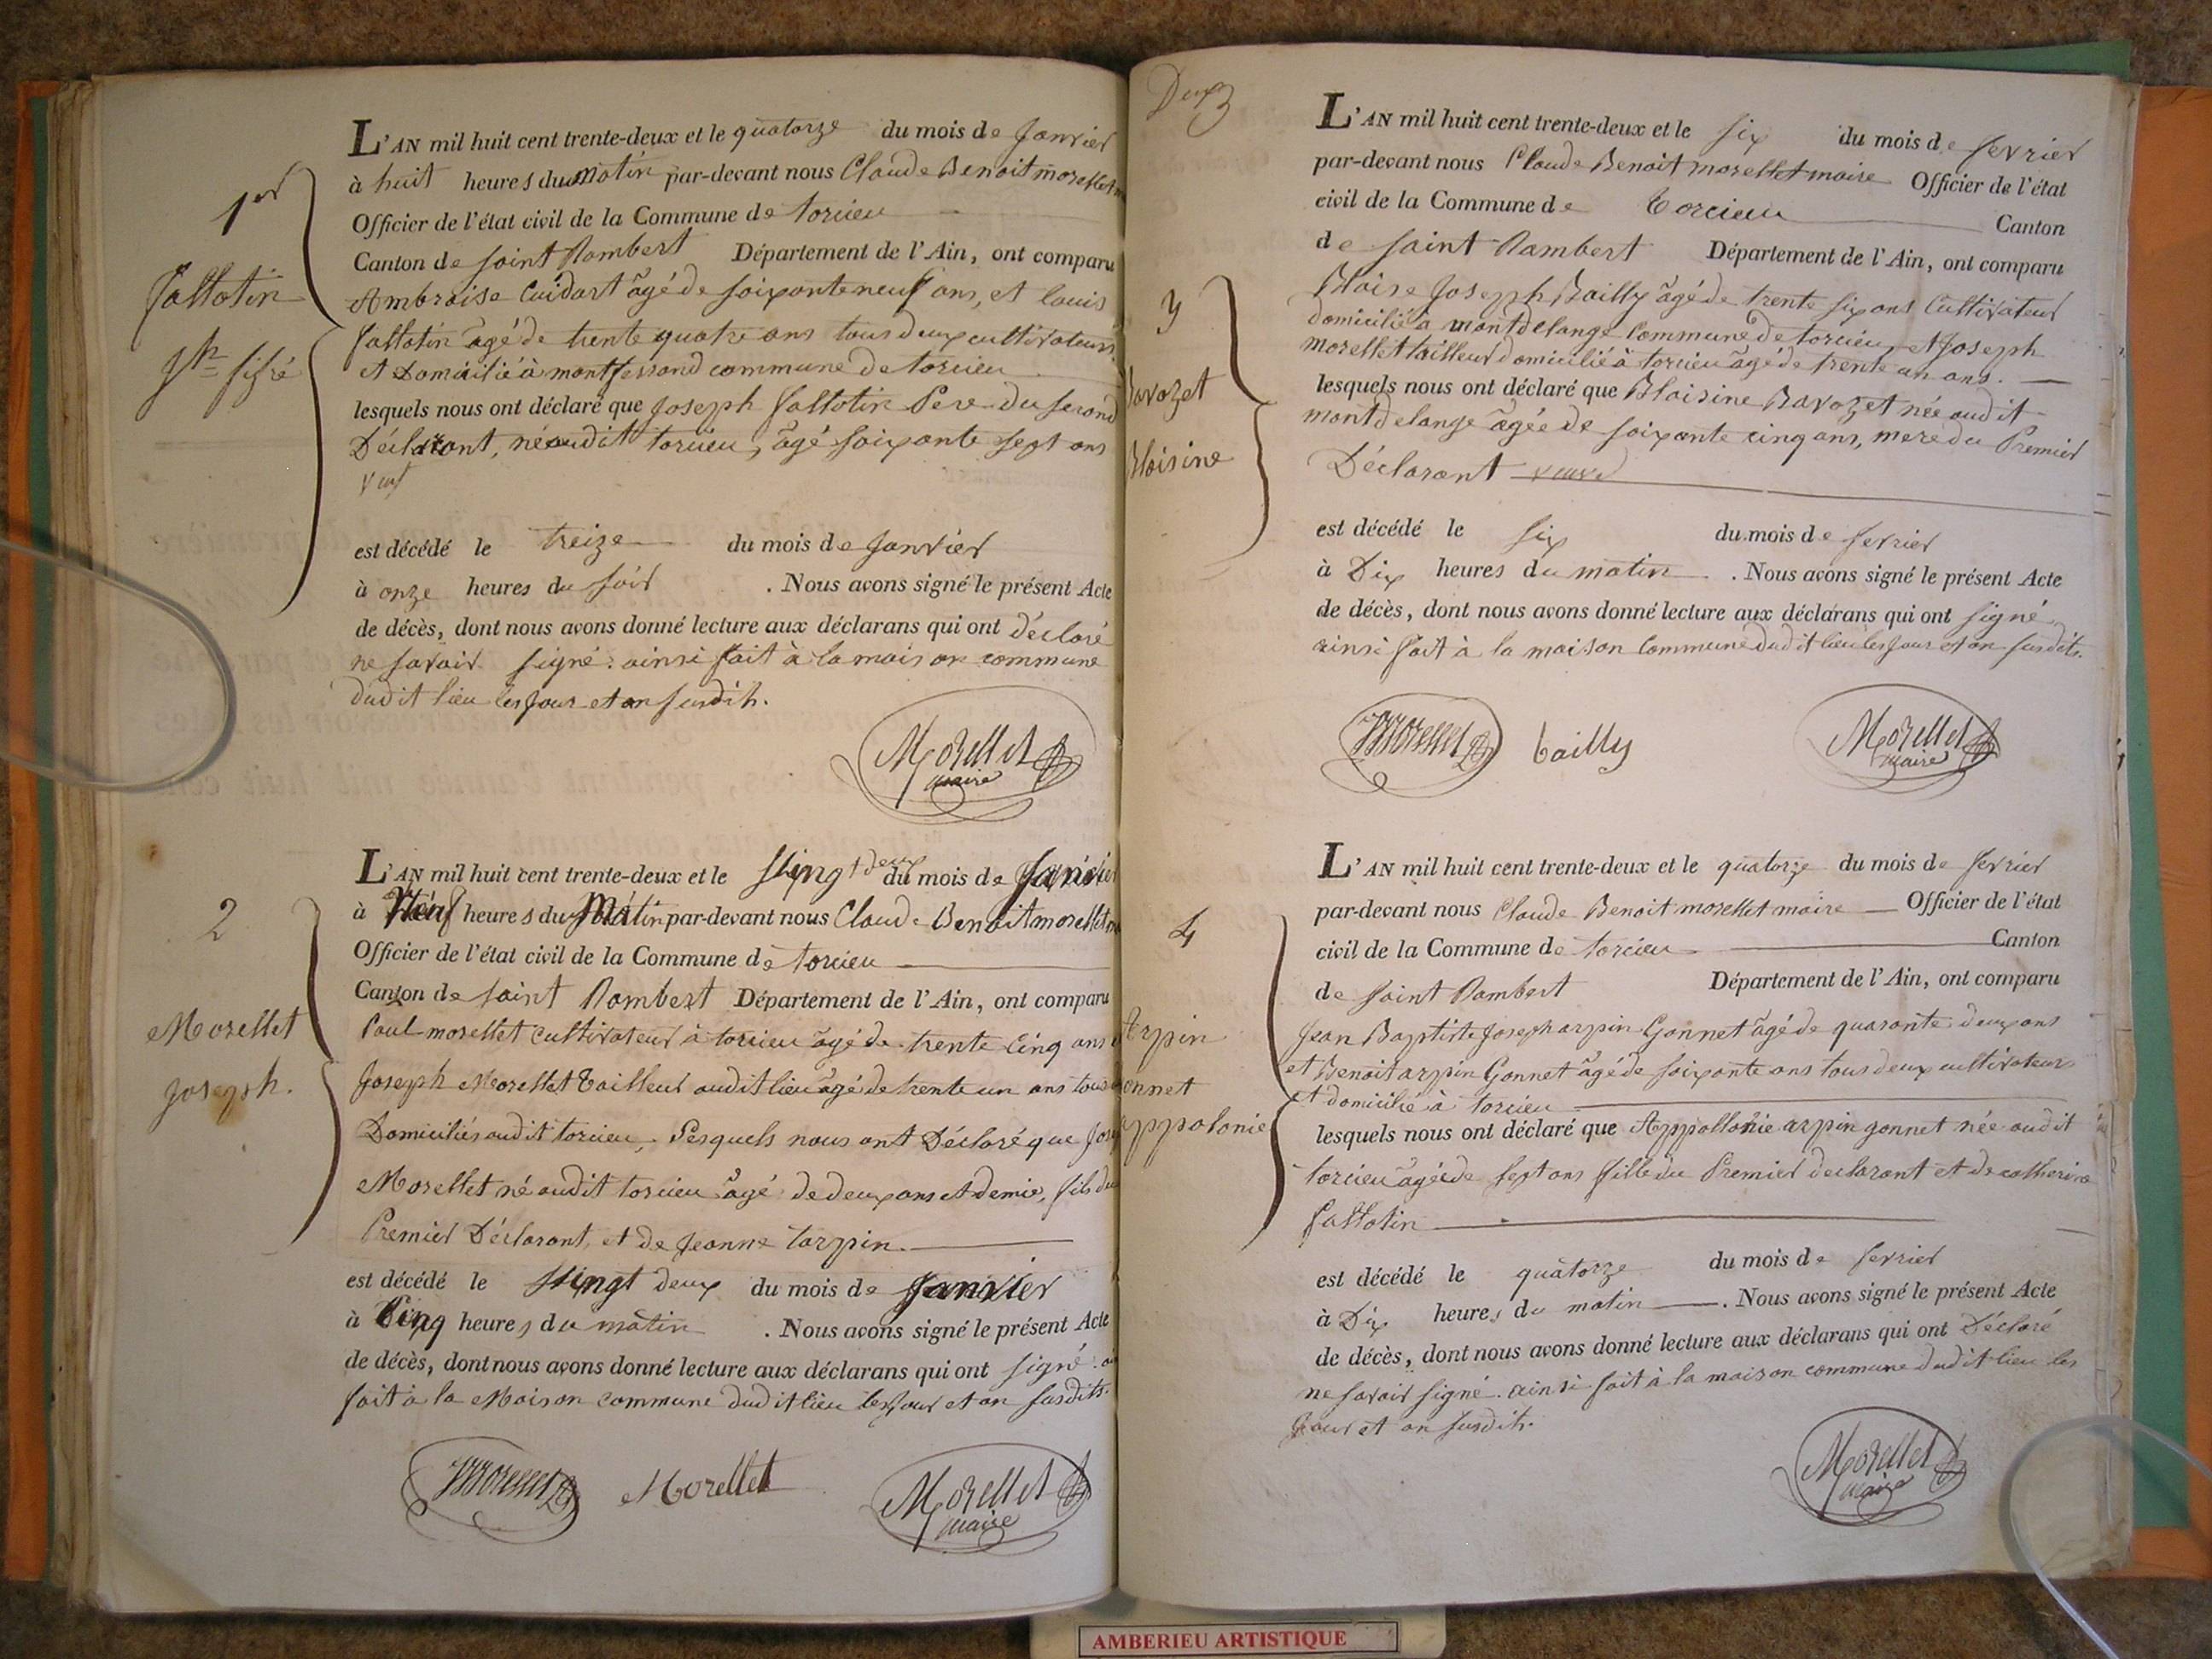 1er
fallotin
jph fifre
L'AN mil huit cent trente-deux et le quatorze du mois de janvier
à huit heures du matin par-devant nous Claude Benoit morellet
Officier de l'état civil de la Commune de torcieu
Canton de saint Rambert Département de l'Ain, ont comparu
Ambroise Cuidart âgé de soixante neuf ans, et louis
fallotin âgé de trente quatre ans tous deux cultivateurs
et Domicilié à montferrand commune de torcieu
lesquels nous ont déclaré que joseph fallotin Pere du second
Déclarant, né audit torcieu, âgé soixante sept ans
veuf
est décédé le treize du mois de janvier
à onze heures du soir . Nous avons signé le présent Acte
de décès, dont nous avons donné lecture aux déclarans qui ont déclaré
ne savoir signé. ainsi fait à la maison commune
dudit lieu les jour et an susdits.
Morellet
maire
2
Morellet
joseph.
L'AN mil huit cent trente-deux et le vingt deux du mois de janvier
à Neuf heures du Matin par-devant nous Claude Benoit morellet
Officier de l'état civil de la Commune de torcieu
Canton de saint Rambert Département de l'Ain, ont comparu
Paul morellet cultivateur à torcieu âgé de trente cinq ans
joseph Morellet tailleur audit lieu âgé de trente un ans tous
Domiciliés audit torcieu, Lesquels nous ont Déclaré que
Morellet né audit torcieu âgé de deux ans et demie, fils du
Premier Déclarant, et de jeanne tarpin.
est décédé le vingt deux du mois de janvier
à Cinq heures du mâtin . Nous avons signé le présent Acte
de décès, dont nous avons donné lecture aux déclarans qui ont signé
fait à la Maison commune dudit lieu les jour et an susdits.
Morellet Morellet Morellet
maire
Deux
3
Bavozet
Blaisine
L'AN mil huit cent trente-deux et le six du mois de fevrier
par-devant nous Claude Benoit morellet maire Officier de l'état
civil de la Commune de torcieu Canton
de saint Rambert Département de l'Ain, ont comparu
Blaise Joseph Bailly âgé de trente six ans Cultivateur
domicilié à montdelange Commune de torcieu, et Joseph
morellet tailleur domicilié à torcieu âgé de trente un ans.
lesquels nous ont déclaré que Blaisine Bavozet née audit
montdelange âgée de soixante cinq ans, mere du Premier
Déclarant veuve
est décédé le six du mois de fevrier
à Dix heures du matin . Nous avons signé le présent Acte
de décès, dont nous avons donné lecture aux déclarans qui ont signé
ainsi fait à la maison Commune dudit lieu les jour et an susdits.
Morellet bailly Morellet
maire
4
Arpin
onnet
appolonie
L'AN mil huit cent trente-deux et le quatorze du mois de fevrier
par-devant nous Claude Benoit morellet maire Officier de l'état
civil de la Commune de torcieu Canton
de saint Rambert Département de l'Ain, ont comparu
Jean Baptiste Joseph arpin Gonnet âgé de quarante deux ans
et Benoit arpin Gonnet âgé de soixante ans tous deux cultivateurs
et domicilié à torcieu
lesquels nous ont déclaré que Appollonie arpin gonnet née audit
torcieu âgée de sept ans fille du Premier declarant et de catherine
fallotin
est décédé le quatorze du mois de fevrier
à Dix heures du matin . Nous avons signé le présent Acte
de décès, dont nous avons donné lecture aux déclarans qui ont Déclaré
ne savoir signé. ainsi fait à la maison commune dudit lieu les
jour et an susdits.
Morellet
maire
AMBERIEU ARTISTIQUE